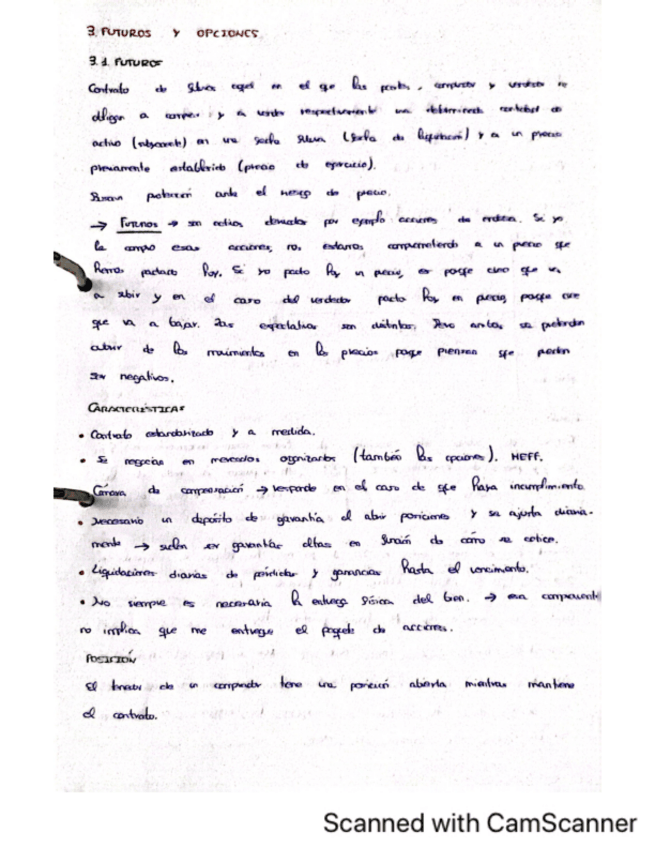 3. FUTUROS Y OPCIONES
3.1. FUTUROS
Contrato de futuros aquel en el que las partes, comprador y vendedor se
obligan a comprar y a vender respectivamente una determinada cantidad de
activo (subyacente) en una fecha futura (fecha de liquidación) y a un precio
previamente establecido (precio de ejercicio).
Buscan protección ante el riesgo de precio.
→ FUTUROS → son activos derivados por ejemplo acciones de endesa. Si yo
le compro esas acciones, nos estamos comprometiendo a un precio que
hemos pactado hoy. Si yo pacto hoy un precio, es porque creo que va
a subir y en el caso del vendedor pacto hoy en precio, porque cree
que va a bajar. Las expectativas son distintas. Pero ambos se pretenden
cubrir de los movimientos en los precios porque piensan que pueden
ser negativos.
CARACTERÍSTICAS
• Contrato estandarizado y a medida.
• Se negocian en mercados organizados (también las opciones). MEFF.
Cámara de compensación → responde en el caso de que haya incumplimiento.
• Necesario un depósito de garantía al abrir posiciones y se ajusta diaria-
mente → suelen ser garantías altas en función de cómo se cotice.
• Liquidaciones diarias de pérdidas y ganancias hasta el vencimiento.
• No siempre es necesaria la entrega física del bien. → esa compraventa
no implica que me entregue el paquete de acciones.
POSICIÓN
El tenedor de un comprador tiene una posición abierta mientras mantiene
el contrato.
Scanned with CamScanner